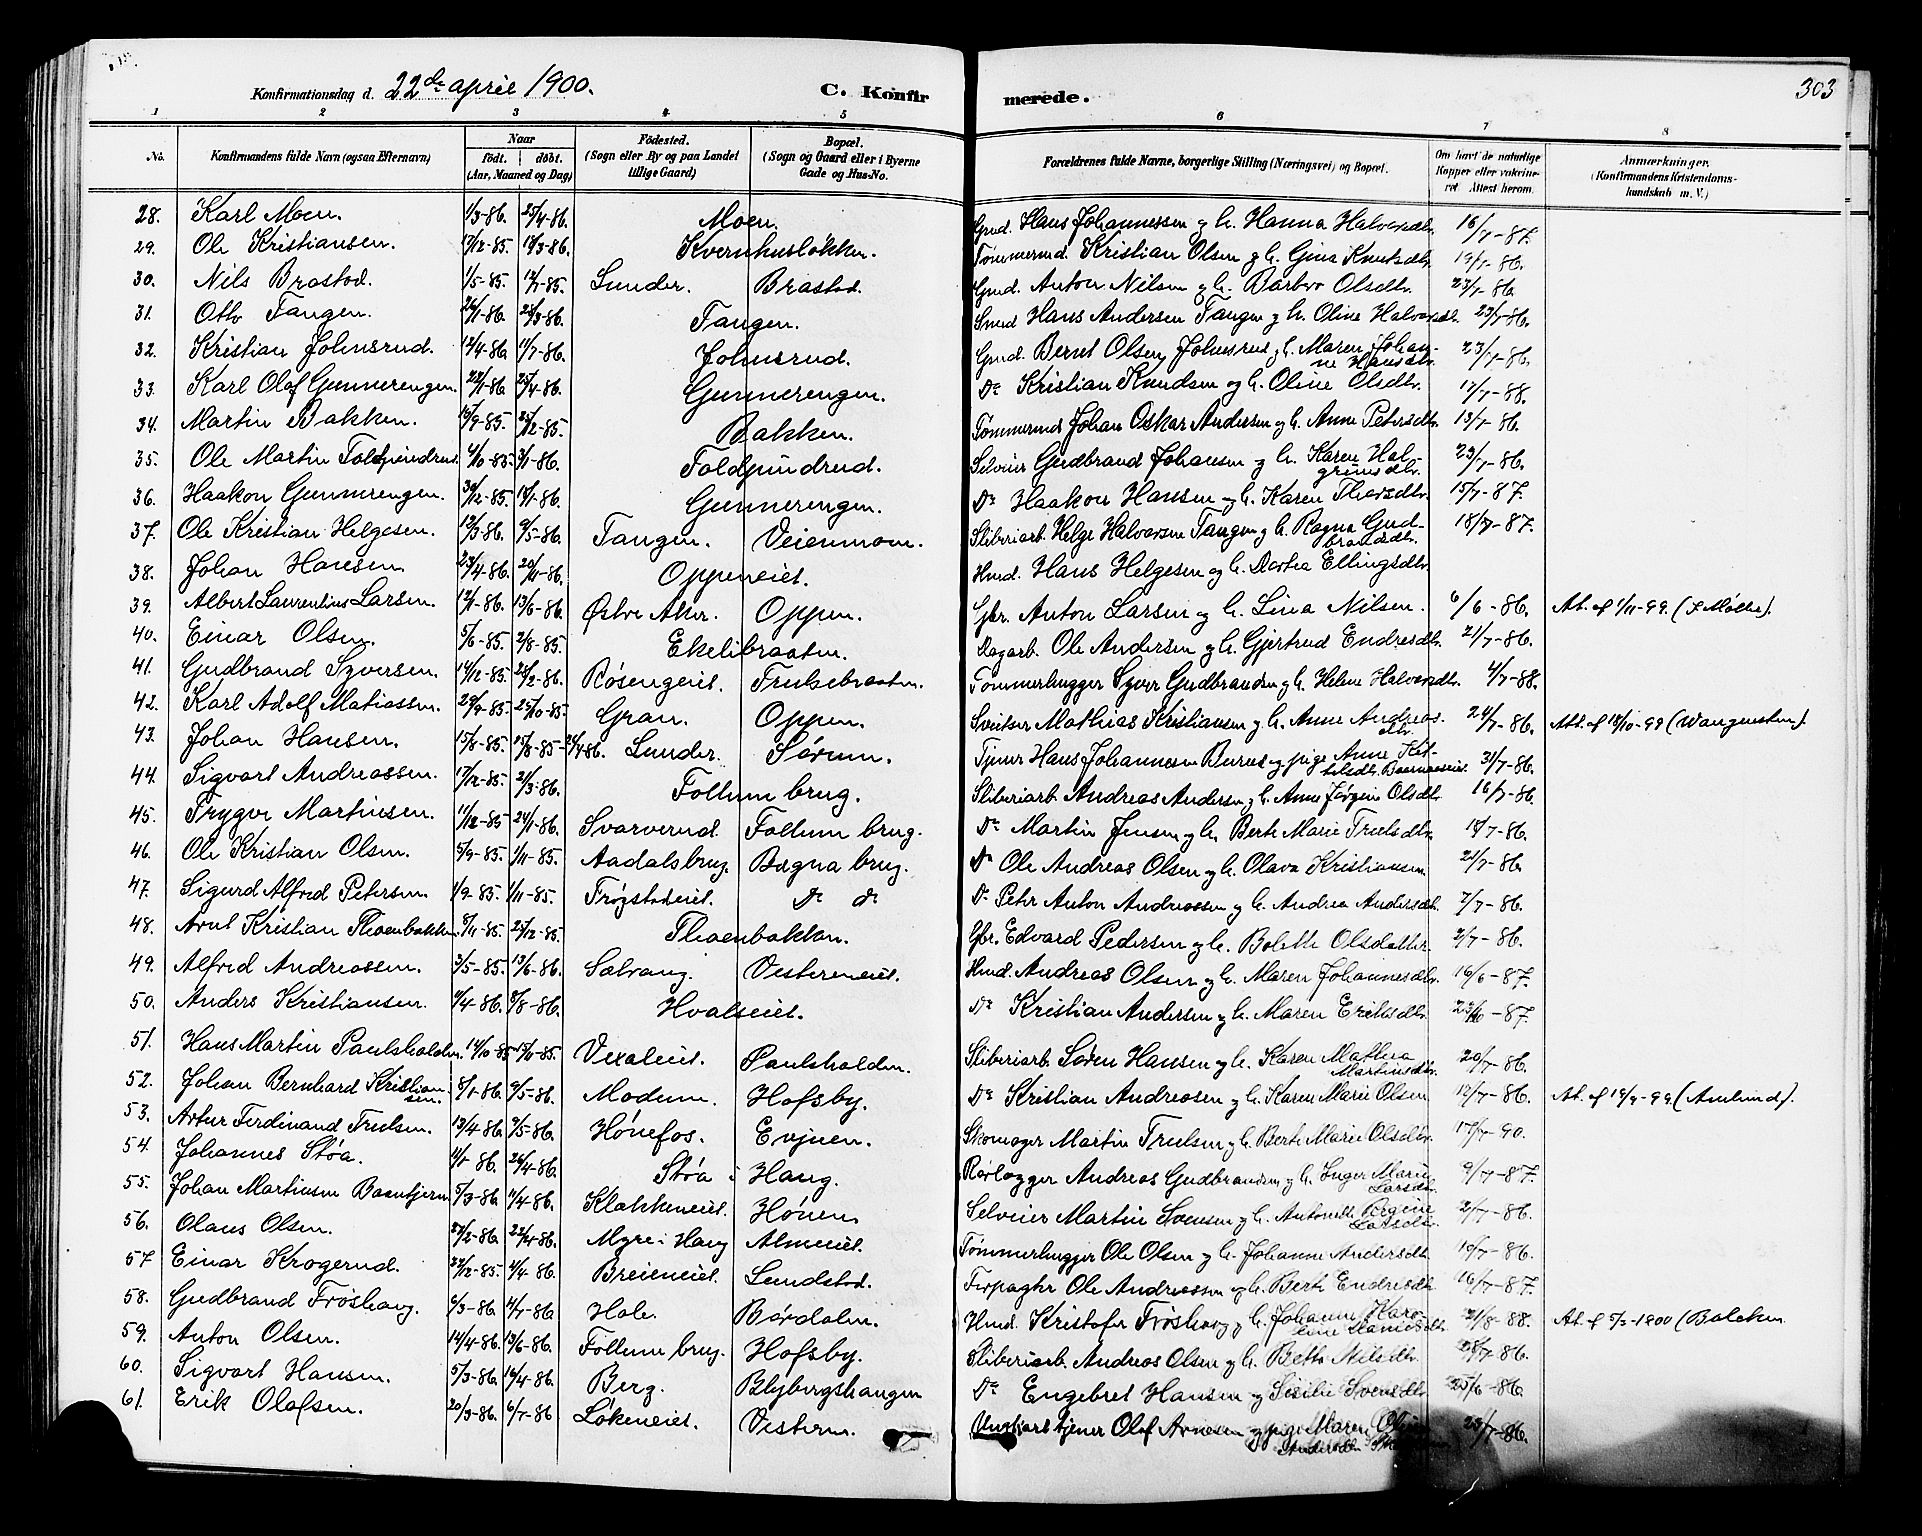 Konfirmationsdag d. 22de april 1900. C. Konfirmerede. 303
1 2 3 4 5 6 7 8
No. Konfirmandens fulde Navn (ogsaa Efternavn) Naar født. døbt. (Aar, Maaned og Dag) Fødested. (Sogn eller By og paa Landet tillige Gaard) Bopæl. (Sogn og Gaard eller i Byerne Gade og Hus-No. Forældrenes fulde Navne, borgerlige Stilling (Næringsvei) og Bopæl. Om havt de naturlige Kopper eller vakcineret Attest herom. Anmærkninger. (Konfirmandens Kristendomskundskab m. V.)
28. Karl Moen. 1/3-86. 25/4-86. Moen. Gmd. Hans Johannessen og h. Hanna Halvorsdtr. 16/7-87.
29. Ole Kristiansen. 17/12-85. 14/3-86. Kvernhusløkken. Tømmermd. Kristian Olsen og h. Gina Knutsdtr. 19/7-86.
30. Nils Brastad. 1/5-85. Lunder. Brastad. Gmd. Anton Nilsen og h. Barbro Olsdtr. 23/7-86.
31. Otto Tangen. 26/1-86. 28/3-86. Tangen. Smed Hans Andersen Tangen og h. Oline Halvorsdtr. 23/7-86.
32. Kristian Johnsrud. 12/4-86. 11/7-86. Johnsrud. Gmd. Bernt Olsen Johnsrud og h. Maren Johanne Hansdtr. 23/7-86.
33. Karl Olaf Gunnerengen. 22/1-86. 25/4-86. Gunnerengen. Do Kristian Knudsen og h. Oline Olsdtr. 17/7-88.
34. Martin Bakken. 15/9-85. 25/12-85. Bakken. Tømmermd Johan Oskar Andersen og h. Anne Petersdtr. 13/7-86.
35. Ole Martin Foldpindrud. 4/10-85. 3/1-86. Foldpindrud. Selveier Gudbrand Johansen og h. Karen Halgrimsdtr. 23/7-86.
36. Haakon Gunnerengen. 30/12-85. Gunnerengen. Do Haakon Hansen og h. Karen Thorsdtr. 15/7-87.
37. Ole Kristian Helgesen. 12/3-86. 9/5-86. Tangen. Veienmoen. Sliberiarb. Helge Halvorsen Tangen og h. Ragna Gudbrandsdtr. 18/7-87.
38. Johan Hansen. 23/4-86. 20/11-86. Oppeneiet. Hmd. Hans Helgesen og h. Dortea Ellingsdtr.
39. Albert Laurentius Larsen. 12/1-86. 13/6-86. Østre Aker. Oppen. Gbr. Anton Larsen og h. Lina Nilsen. 6/6-86. At. af 1/11-99.
40. Einar Olsen. 5/6-85. 2/8-85. Ekelibraaten. Dagarb. Ole Andersen og h. Gjertrud Endresdtr. 21/7-86.
41. Gudbrand Syversen. 14/12-85. 28/2-86. Røsengeiet. Trulsebraaten. Tømmerhugger Syver Gudbrandsen og h. Helene Halvorsdtr. 4/7-88.
42. Karl Adolf Matiassen. 29/9-85. 25/10-85. Gran. Oppen. Sveitser Mathias Kristiansen og h. Anne Andreasdtr. 24/7-86. Att. af 18/10-99
43. Johan Hansen. 15/8-85. Lunder. Sørum. Tjener Hans Johannesen Bures og pige Anne Ketilsdtr. 31/7-86.
44. Sigvart Andreassen. 17/12-85. 21/3-86. Follum brug. Sliberiarb. Andreas Andersen og h. Anne Jørgine Olsdtr. 16/7-86.
45. Trygve Martinsen. 11/12-85 24/1-86. Svarverud. Follum brug. Do Martin Jensen og h. Berte Marie Trulsdtr. 18/7-86.
46. Ole Kristian Olsen. 5/9-85. 1/11-85. Aadalsbrug. Bægna brug. Do Ole Andreas Olsen og h. Olava Kristiansen 21/7-86.
47. Sigurd Alfred Petersen. 1/9-85. 1/11-85. Frøgstadeiet. Do do Do Peter Anton Andreassen og h. Andrea Andersdtr. 7/7-86.
48. Arnt Kristian Thoenbakken. 8/11-85. 25/12-85. Thoenbakken. Gbr. Edvard Pedersen og h. Bolette Olsdatter. 2/7-86.
49. Alfred Andreassen. 3/5-85. 13/6-86. Solvang. Vestereneiet. Hmd. Andreas Olsen og h. Maren Johannesdtr. 16/6-87.
50. Anders Kristiansen. 4/4-86. 8/8-86. Hvalseiet. Do Kristian Andersen og h. Maren Eriksdtr. 23/10-87.
51. Hans Martin Paulsholden. 14/10-85 Vexaleiet. Paulsholden. Sliberiarb. Søren Hansen og h. Karen Mathea Martinsdtr. 20/7-86.
52. Johan Bernhard Kristiansen. 8/1-86. 9/5-86. Modum. Hofsby. Do Kristian Andreasen og h. Karen Marie Olsen 12/7-86.
53. Artur Ferdinand Trulsen. 13/4-86. 9/5-86. Hønefos. Evjuen. Skomager Martin Trulsen og h. Berte Marie Olsdtr. 17/7-90.
54. Johannes Støa. 11/1-86. 26/4-86. Støa i Haug. Rørlægger Andreas Gudbrandsen og h. Inger Marie Larsdtr. 9/7-87.
55. Johan Martinsen Baantjern 5/3-86. 11/4-86. Klækkeneiet. Hønen Selveier Martin Svensen og h. Antonette Regine Larsdtr. 2/7-86.
56. Olaus Olsen. 27/2-86. 22/4-86. Myre i Haug Almeiet. Tømmerhugger Ole Olsen og h. Johanne Andersdtr. 10/7-86.
57 Einar Krogerud. 22/12-85. 4/4-86. Breieneiet. Lundstad. Forpagter Ole Andreassen og h. Berte Endresdtr. 16/7-87.
58. Gudbrand Frøshaug. 6/3-86. 11/7-86 Hole. Børdalen. Hmd. Kristofer Frøshaug og h. Johanne Karoline 21/8-88. At. af 5/3-1800 (Bolsken
59. Anton Olsen. 14/4-86. 13/6-86. Follum brug. Hofsby. Sliberiarb. Andreas Olsen og h. Nilsdtr. 7-86.
60. Sigvart Hansen. 5/3-86. 16/4-86. Berg. Blybergshaugen Do Engebret Hansen og Sisilie Svensdtr. 25/6-86.
61. Erik Olafsen. 20/3-86. 6/7-86 Løkeneiet. Vestern. Ungkarl tjener Olaf Arnesen og pige Maren 23/7-86.